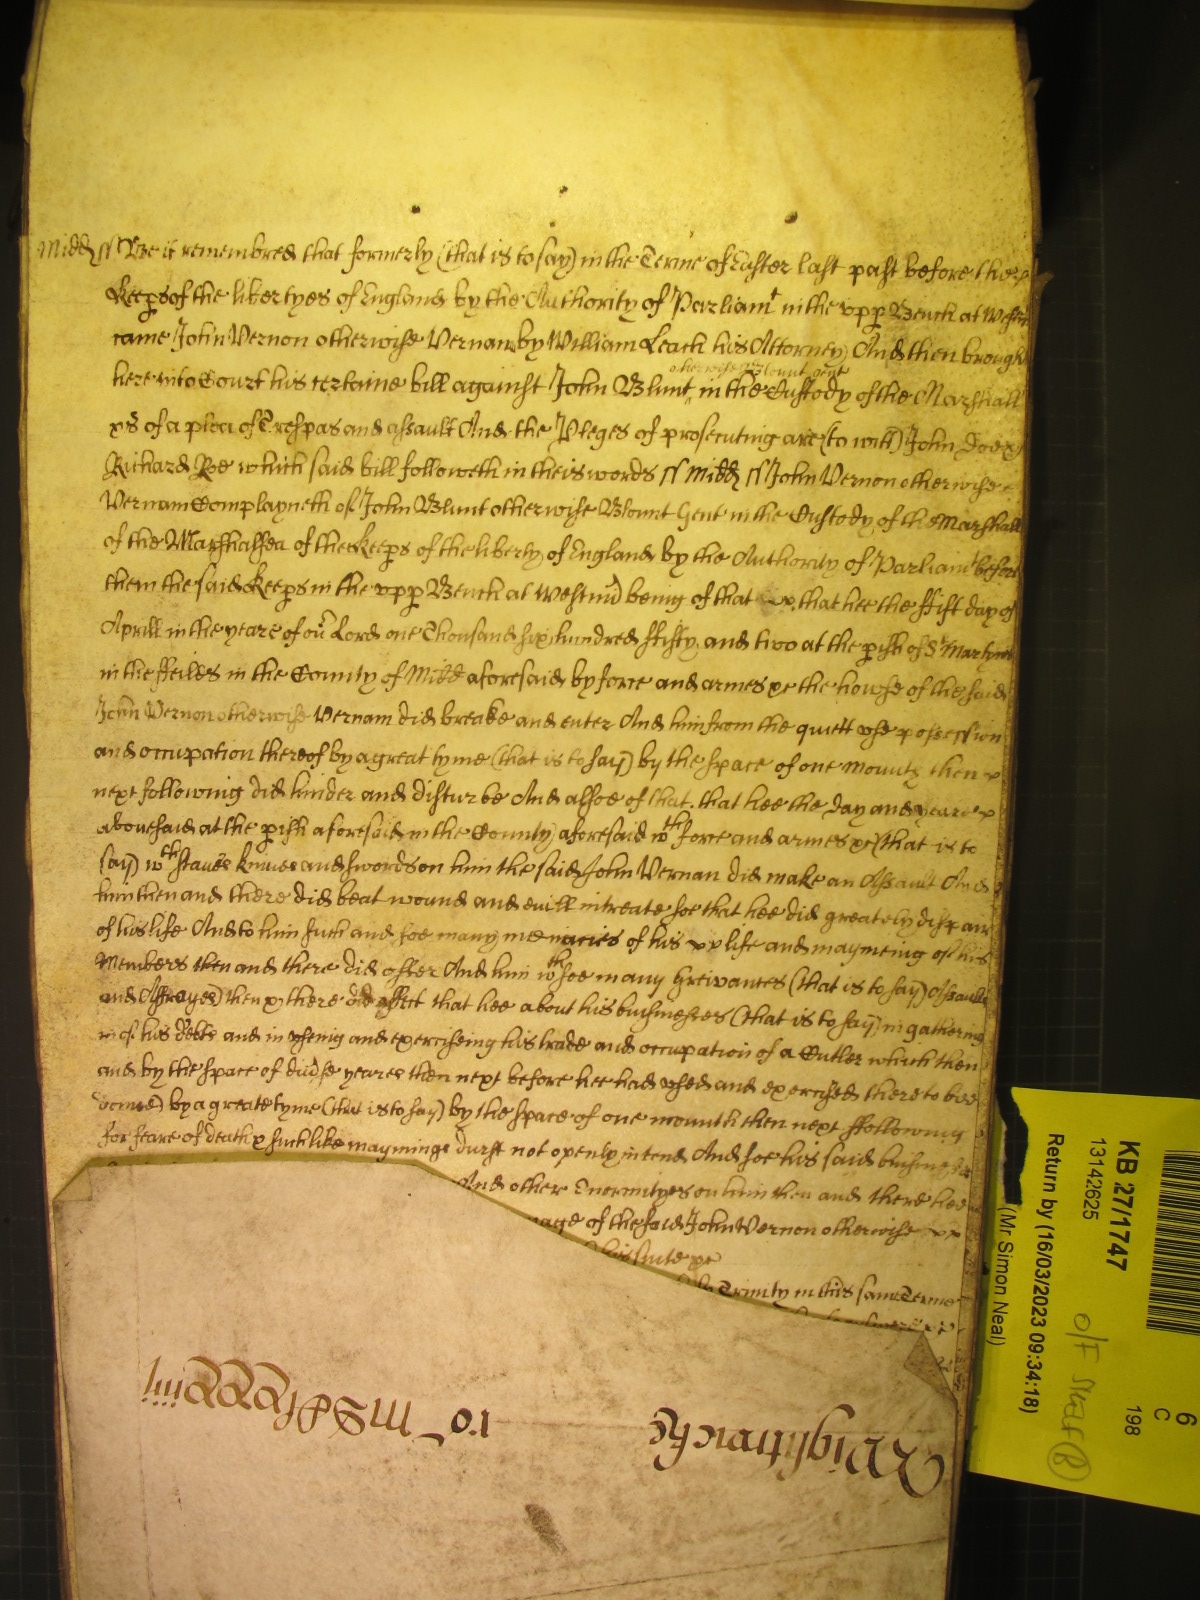 Midd ss Be it remembred that formerly (that is to say) in the Terme of Easter last past before the
Keeps of the libertyes of England by the Authority of Parliamt in the vpp Bench at Westm
came John Vernon otherwise Vernam by William Leach his Attorney And then brought
otherwise Blount gent
here into Court his certaine bill against John Blunt in the Custody of the Marshall
xc of a plea of Trespas and assault And the Pleges of prosecuting are (to wit) John Doe x
Richard Roe which said bill followeth in theis words ss Midd ss John Vernon otherwise
Vernam Complayneth of John Blunt otherwise Blount Gent in the Custody of the Marshall
of the Marshalsea of the Keeps of the liberty of England by the Authority of Parliamt before
them the said Keeps in the vpp Bench at Westm being of that that hee the ffift day of
Aprill in the yeare of our Lord one Thousand six hundred ffifty and two at the pish of St Martyns
in the ffeilds in the County of Midd aforesaid by force and armes xc the howse of the said
John Vernon otherwise Vernam did breake and enter And him from the quiett vse possession
and occupation thereof by a great tyme (that is to say) by the space of one Month then
next following did hinder and disturbe And alsoe of that that hee the day and yeare
abouesaid at the pish aforesaid in the County aforesaid wth force and armes xc (that is to
say) wth staues knives and swords on him the said John Vernan did make an Assault And
him then and there did beat wound and euill intreate soe that hee did greately dispair
of his life And to him such and soe many menacies of his life and maymeing of his
Members then and there did offer And him wth soe many Greivances (that is to say) Assaults
and Affrayes) then x there did affect that hee about his businesses (that is to say) in gathering
in of his debts and in vseing and exerciseing his trade and occupation of a Cutler which then
and by the space of years then next before hee had vsed and exercised there to bee
donne) by a greate tyme (that is to say) by the space of one mounth then next ffollowing
for feare of death x such like mayminge durst not openly intend And soe his said
And other Enormityes on him then and there hee
of the said John Vernon otherwise
his suite xc
Trinity in this same Terme
Wightwicke
ro MDCLXXXiiij
KB 27/1747
13142625
Return by (16/03/2023 09:34:18)
(Mr Simon Neal)
6
C
198